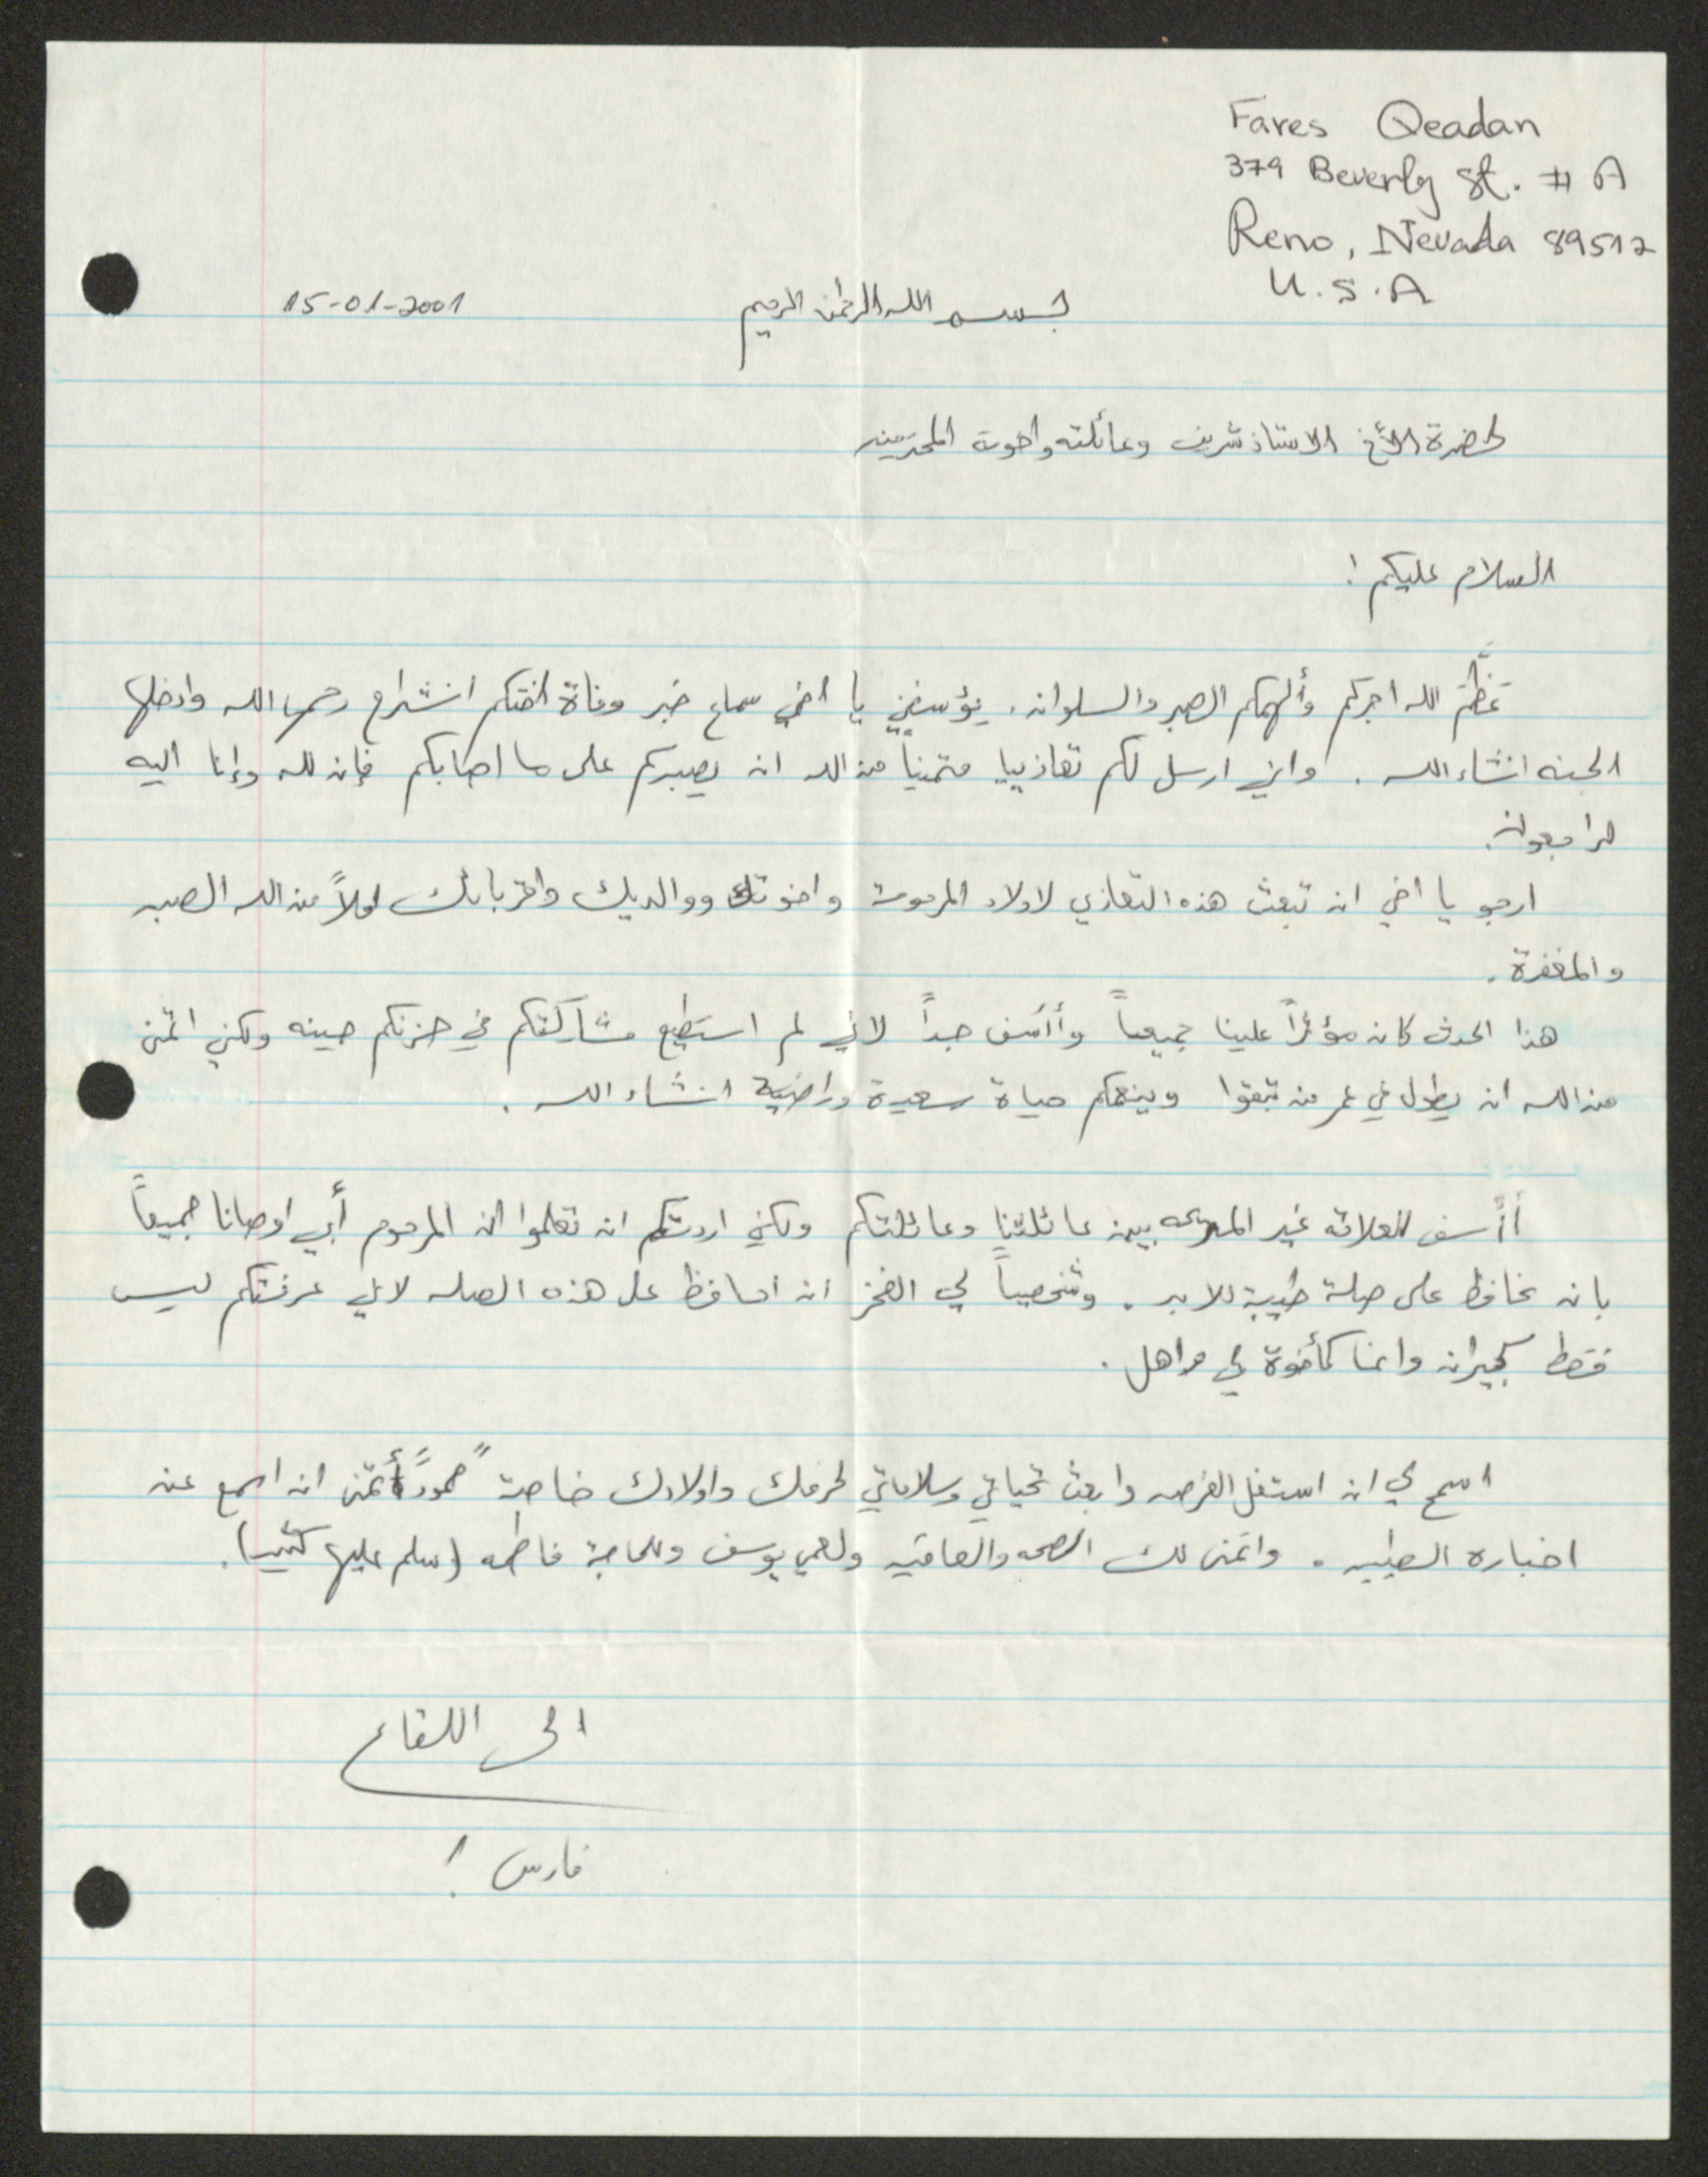 Fares Qeadan
379 Beverly St. # A
Reno, Nevada 89512
U.S.A
بسم الله الرحمن الرحيم
15-01-2001
لحضرة الأخ الاستاذ شريف وعائلته واخوته المحترمين
السلام عليكم !
عَظَّمَ الله اجركم وألهمكم الصبر والسلوان. يؤسفني يا اخي سماع خبر وفاة اختكم انشراح رحمها الله وادخلها
الجنه انشاء الله . واني ارسل لكم تعازييا متمنياً من الله ان يصبركم على ما اصابكم فإن لله وإنا اليه
لراجعون.
ارجو يا اخي ان تبعث هذه التعازي لاولاد المرحومة واخوتك ووالديك واقربائك املاً من الله الصبر
والمغفرة.
هذا الحدث كان مؤثراً علينا جميعاً وأأسف جداً لاني لم استطيع مشاركتكم في حزنكم حينه ولكني اتمنى
من الله ان يطول في عمر من تبقوا ويمنحكم حياة سعيدة وراضية انشاء الله .
أأسف للعلاقه غير بين عائلتنا وعائلتكم ولكني اردتكم ان تعلموا ان المرحوم أبي اوصانا جميعاً
بان نحافظ على صلة طيبة للابد . وشخصياً لي الفخر ان احافظ على هذه الصله لاني عرفتكم ليس
فقط كجيران وانما كأخوة لي واهل .
اسمح لي ان استغل الفرصه وابعث تحياتي وسلاماتي لحرمك واولادك خاصة "حمود" أتمنى ان اسمع عن
اخباره الطيبه . واتمنى لك الصحه والعافيه ولعمي يوسف وللحاجة فاطمه (سلم عليها كثير).
الى اللقاء
فارس !